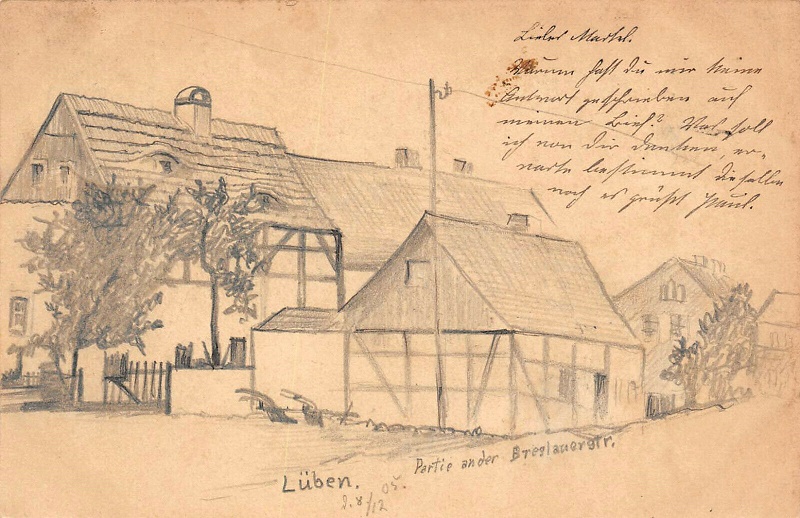 Lieber Martel.
Warum hast du mir keine
Antwort geschrieben auf
meinen Brief? Was soll
ich von dir denken, er-
warte bestimmt dieselbe
noch es grüßt Paul.
Partie an der Breslauerstr.
Lüben.
d. 8/12 05.